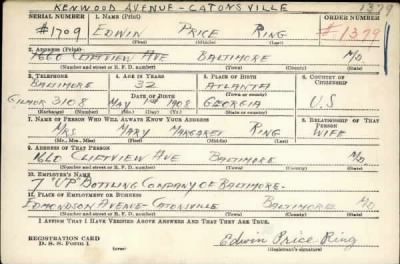 KENWOOD AVENUE - CATONSVILLE
1379
SERIAL NUMBER 1. NAME (Print) ORDER NUMBER
#1709 EDWIN PRICE RING #1379
(First) (Middle) (Last)
2. ADDRESS (Print)
AVE BALTIMORE MD.
(Number and street or R. F. D. number) (Town) (County) (State)
3. TELEPHONE 4. AGE IN YEARS 5. PLACE OF BIRTH 6. COUNTRY OF CITIZENSHIP
BALTIMORE 32 ATLANTA
DATE OF BIRTH (Town or county)
GILMOR 3108 MAY 1st 1908 GEORGIA U.S
(Exchange) (Number) (Mo.) (Day) (Yr.) (State or country)
7. NAME OF PERSON WHO WILL ALWAYS KNOW YOUR ADDRESS 8. RELATIONSHIP OF THAT PERSON
MRS MARY MARGARET RING WIFE
(Mr., Mrs., Miss) (First) (Middle) (Last)
9. ADDRESS OF THAT PERSON
AVE BALTIMORE MD.
(Number and street or R. F. D. number) (Town) (County) (State)
10. EMPLOYER'S NAME
7 "UP" BOTTLING COMPANY OF BALTIMORE-
11. PLACE OF EMPLOYMENT OR BUSINESS
EDMONDSON AVENUE - CATONSVILLE BALTIMORE MD.
(Number and street or R. F. D. number) (Town) (County) (State)
I AFFIRM THAT I HAVE VERIFIED ABOVE ANSWERS AND THAT THEY ARE TRUE.
REGISTRATION CARD
D. S. S. Form 1 (over) Edwin Price Ring
(Registrant's signature)